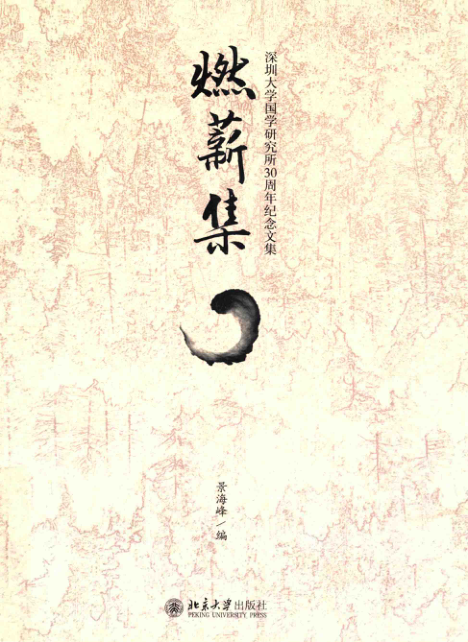 燃薪集
深圳大学国学研究所30周年纪念文集
景海峰/编
北京大学出版社
PEKING UNIVERSITY PRESS